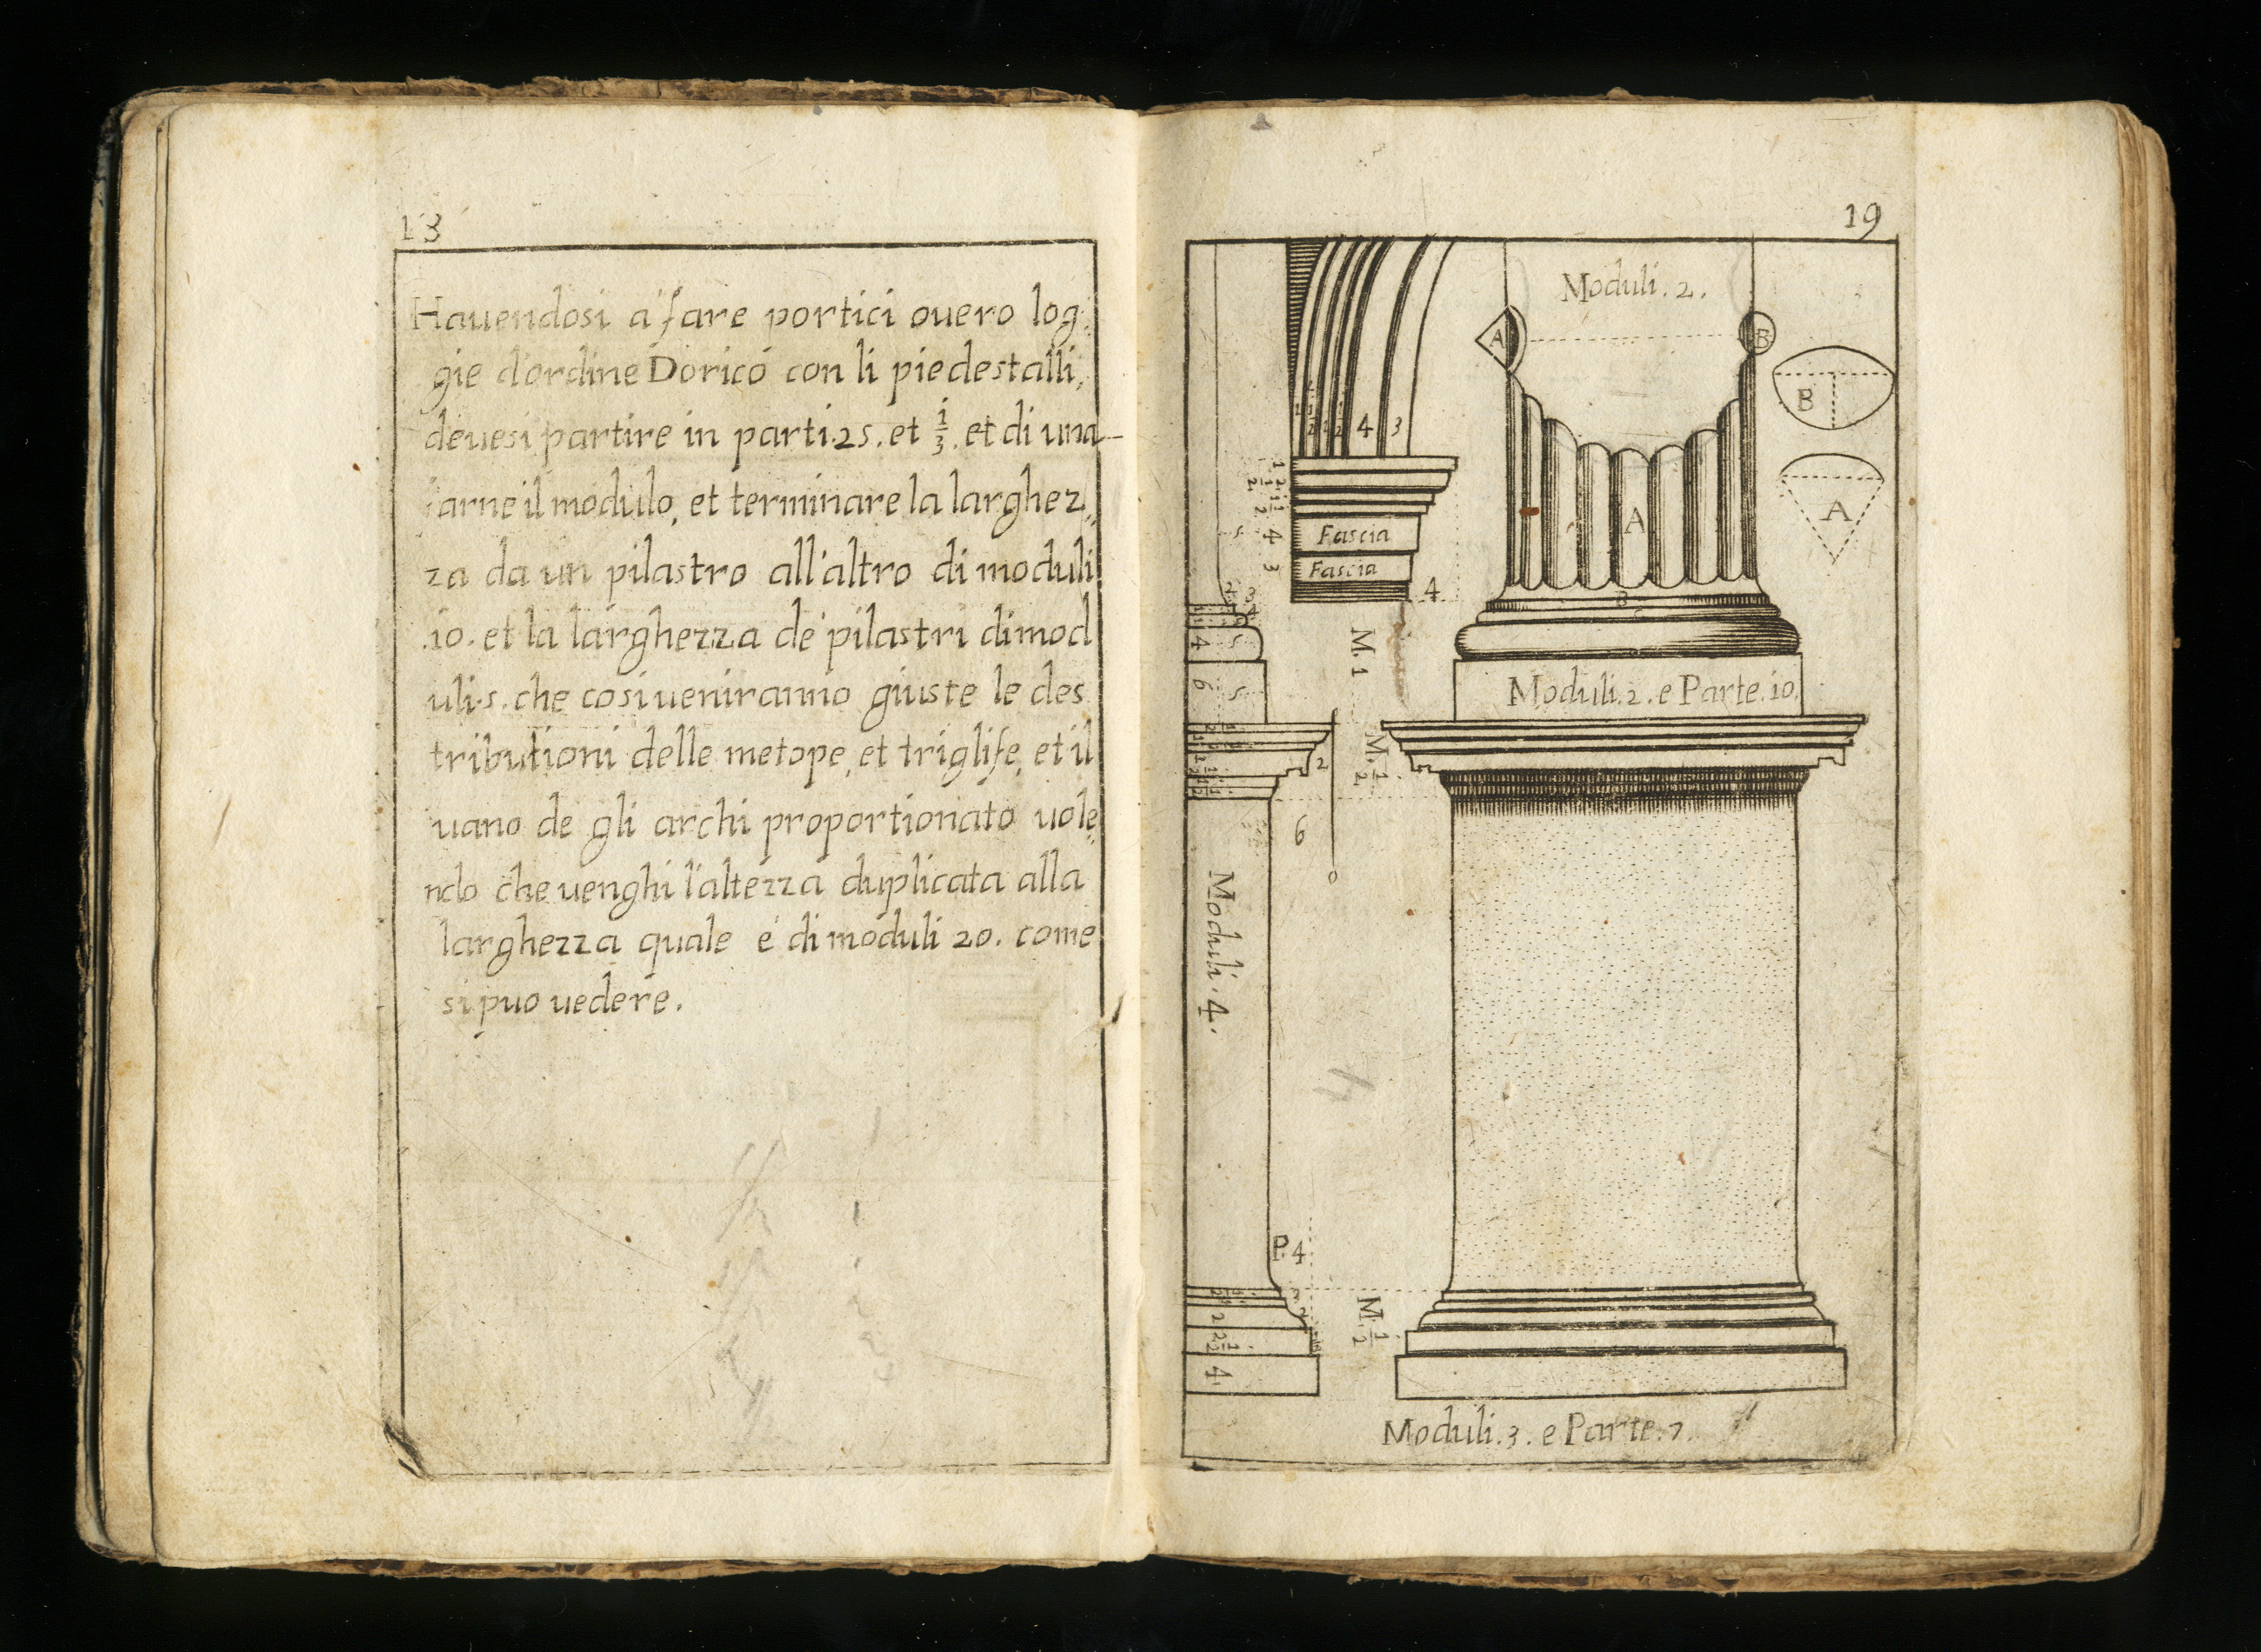 13
Hauendosi a fare portici ouero log
gie d'ordine Dorico con li piedestalli,
deuesi partire in parti.25. et 1/3. et di una
farne il modulo, et terminare la larghez,,
za da un pilastro all'altro di moduli
.10. et la larghezza de pilastri di mod
uli.5. che cosi ueniranno giuste le des
tributioni delle metope, et triglife, et il
uano de gli archi proportionato uole,,
ndo che uenghi l'altezza duplicata alla
larghezza quale é di moduli 20. come
si puo uedere.
19
Moduli.2.
A
B
B
A
4 3
Fascia
4
Fascia
3
4
A
B
M. 1
4 5
6 5
Moduli.2. e Parte.10.
M. 1/2
2
6
Moduli.4.
P. 4
M. 1/2
2
2 1/2
4.
Moduli.3. e Parte.7.